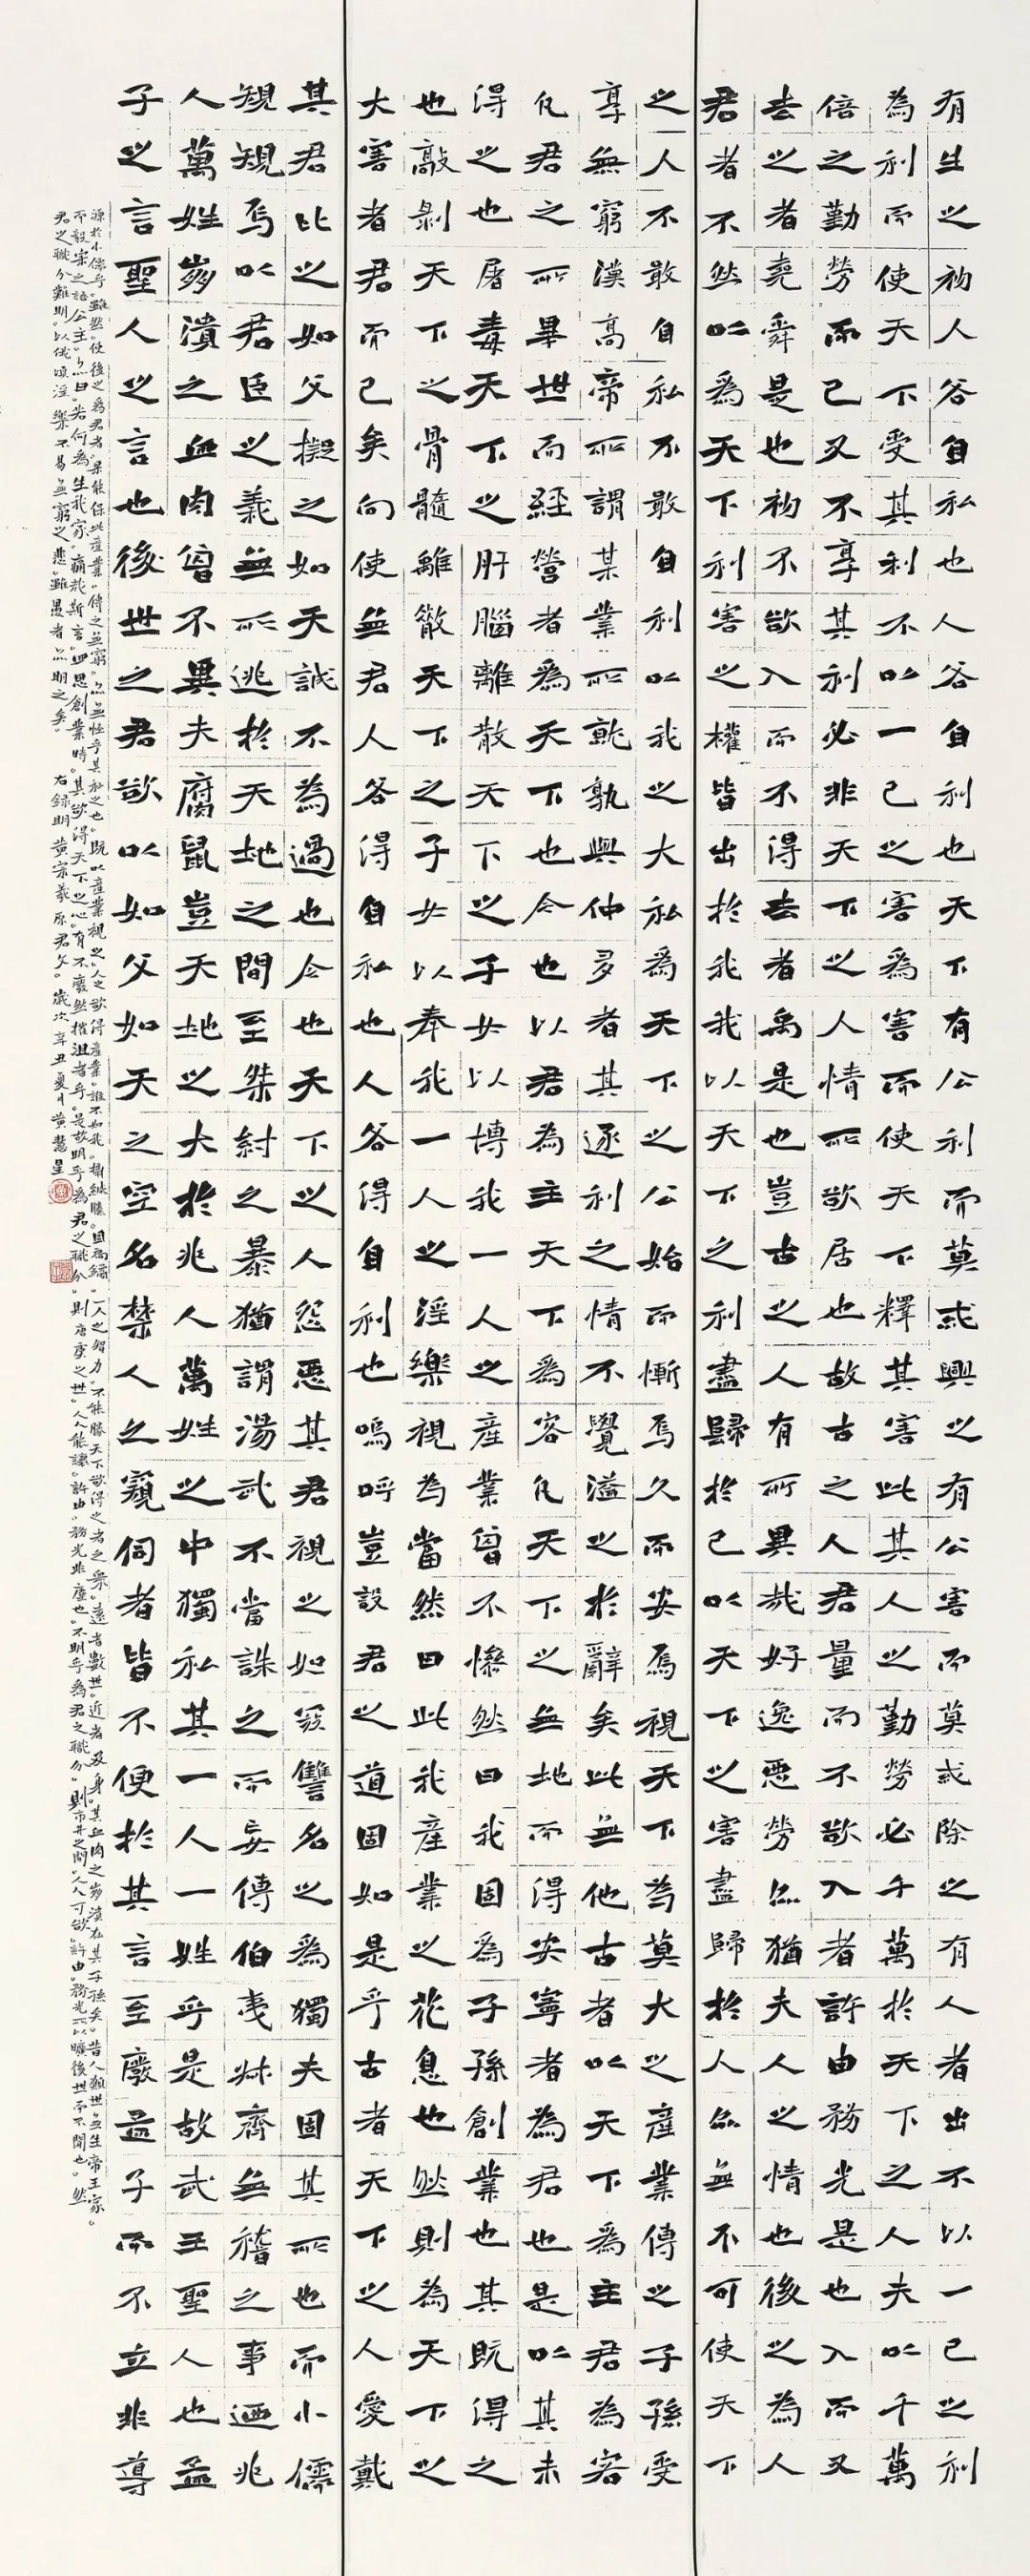 有生之初人各自私也人各自利也天下有公利而莫或興之有公害而莫或除之有人者出不以一己之利
為利而使天下受其利不以一己之害為害而使天下釋其害此其人之勤勞必千萬於天下之人夫以千萬
倍之勤勞而己又不享其利必非天下之人情所欲居也故古之人君量而不欲入者許由務光是也入而又
去之者堯舜是也初不欲入而不得去者禹是也豈古之人有所異哉好逸惡勞亦猶夫人之情也後之為人
君者不然以為天下利害之權皆出於我我以天下之利盡歸於己以天下之害盡歸於人亦無不可使天下
之人不敢自私不敢自利以我之大私為天下之公始而慚焉久而安焉視天下為莫大之產業傳之子孫受
享無窮漢高帝所謂某業所就孰與仲多者其逐利之情不覺溢之於辭矣此無他古者以天下為主君為客
凡君之所畢世而經營者為天下也今也以君為主天下為客凡天下之無地而得安寧者為君也是以其未
得之也屠毒天下之肝腦離散天下之子女以博我一人之產業曾不慘然曰我固為子孫創業也其既得之
也敲剝天下之骨髓離散天下之子女以奉我一人之淫樂視為當然曰此我產業之花息也然則為天下之
大害者君而已矣向使無君人各得自私也人各得自利也嗚呼豈設君之道固如是乎古者天下之人愛戴
其君比之如父擬之如天誠不為過也今也天下之人怨惡其君視之如寇讎名之為獨夫固其所也而小儒
規規焉以君臣之義無所逃於天地之間至桀紂之暴猶謂湯武不當誅之而妄傳伯夷叔齊無稽之事廼兆
人萬姓崩潰之血肉曾不異夫腐鼠豈天地之大於兆人萬姓之中獨私其一人一姓乎是故武王聖人也孟
子之言聖人之言也後世之君欲以如父如天之空名禁人之窺伺者皆不便於其言至廢孟子而不立非導
源於小儒乎。雖然。使後之為君者。果能保此產業。傳之無窮。亦無怪乎其私之也。既以產業視之。人之欲得產業。誰不如我。攝緘縢。固扃鐍。一人之智力。不能勝天下欲得之者之眾。遠者數世。近者及身。其血肉之崩潰在其子孫矣。昔人願世無生帝王家。
而毅宗之語公主。亦曰。若何為生我家。痛哉斯言。回思創業時。其欲得天下之心。有不廢然摧沮者乎。是故明乎為君之職分。則唐虞之世。人人能讓。許由。務光非塵也。不明乎為君之職分。則市井之間。人人可欲。許由。務光所以曠後世而不聞也。然
君之職分難明。以俄頃淫樂不易無窮之悲。雖愚者亦明之矣。 右錄明黃宗羲原君文。歲次辛丑夏月黃慧星